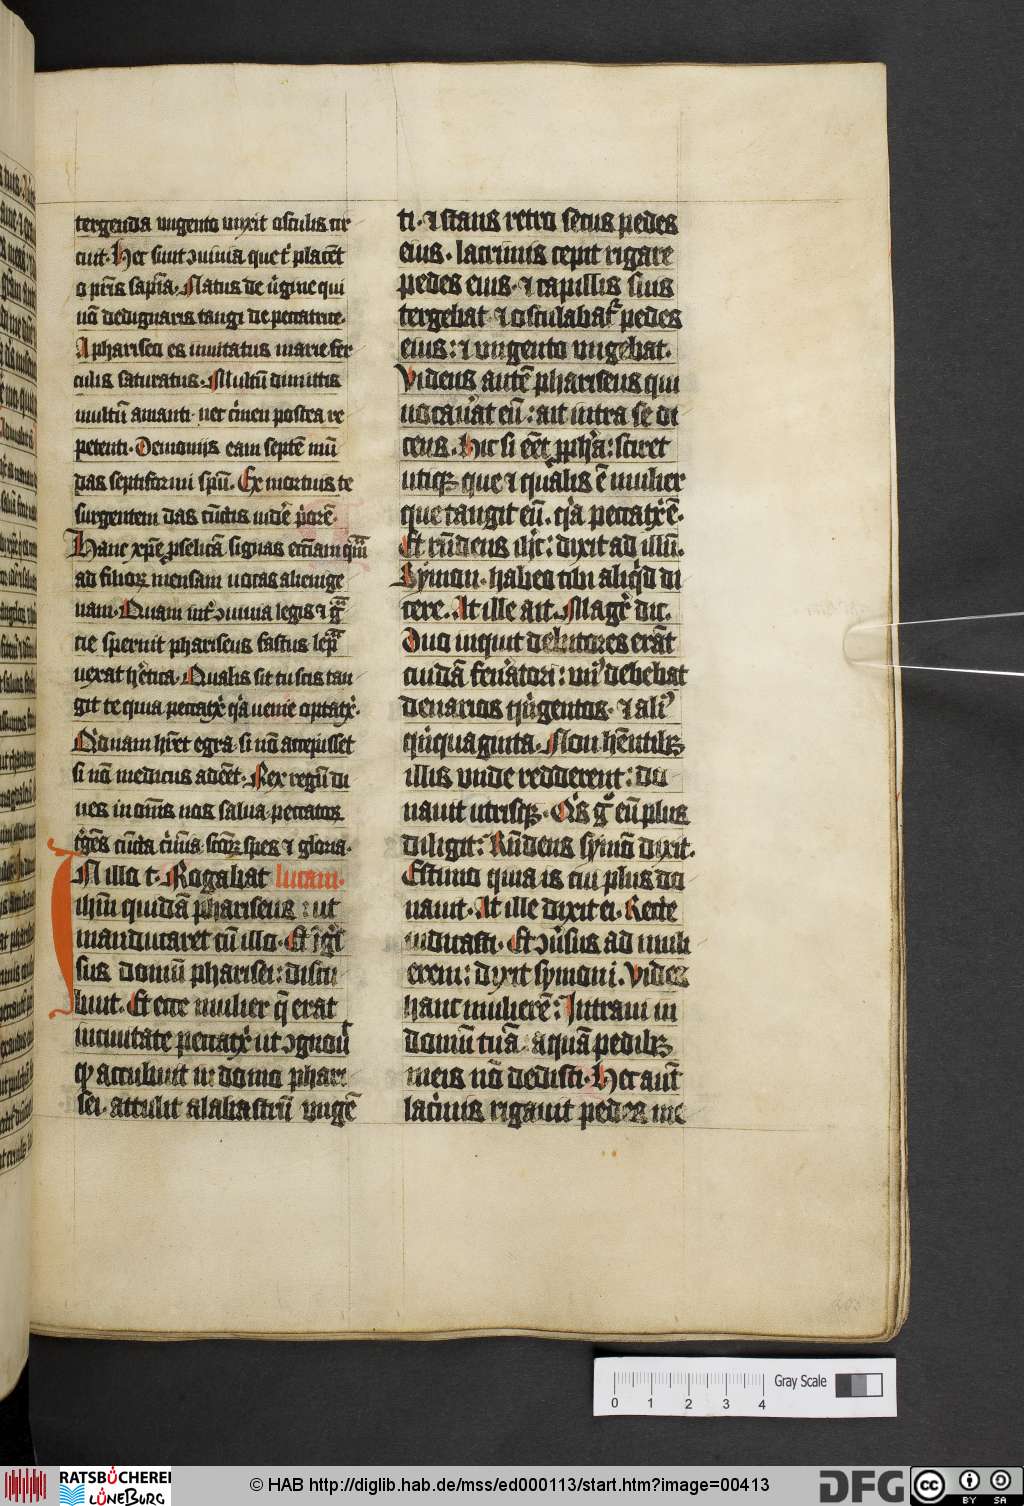 tergenda ungento unxit osculis cir
cuit. Hec sunt ↄuiuia que t' placēt
o pr̄is sapīa. Natus de ũgine qui
nō dedignaris tangi de peccatrice.
A phariseo es inuitatus marie fer
culis saturatus. Multū dimittis
multū amanti. nec c̓men postea re
petenti. Demoniis eam septē mū
das septiformi spū. Ex mortuis te
surgentem das cūctis uidē p̓orē.
Hanc xpē pselicā signas ecc̄iam quā
ad filioꝝ mensam uocas alienige
nam. Quam int̓ ↄuiuia legis ⁊ gr̄a
cie spernit phariseus fastus lepra
uexat h̓etica. Qualis sit tu scis tan
git te quia peccat̓x q̓a uenie optat̓x.
Q̓dnam hr̄et egra. si nō accepisset
si nō medicus adēēt. Rex regū di
ues in om̄s nos salua. peccatoꝝ
t̓gēs cūcta c̓mīa. sc̄oꝝ spes ⁊ gloria.
IN illo t. Rogabat lucam.
ihm̄ quidā phariseus : ut
manducaret cū illo. Et īg̓s
sus domū pharisei : discu
buit. Et ecce mulier q̄ erat
in ciuitate peccat̓x ut ↄgnouit
qꝫ accubuit in domo phari
sei. attulit alabastrū ungē
ti. ⁊ stans retro secus pedes
eius. lacrimis cepit rigare
pedes eius. ⁊ capillis suis
tergebat ⁊ osculabat̓ pedes
eius: ⁊ ungento ungebat.
Videns autē phariseus qui
uocau̓at eū : ait intra se di
cens. Hic si eēt pph̓a: sciret
utiqꝫ que ⁊ qualis ē mulier
que tangit eū. q̓a peccat̓x ē.
Et rn̄dens ih̓c: dixit ad illū.
Symon. habeo tibi aliq̓d di
cere. At ille ait. Magr̄ dic.
Duo inquit debitores erāt
cuidā fen̓atori: un̓ debebat
denarios q̓ngentos. ⁊ ali̓
q̓nquaginta. Non hn̄tibꝫ
illis unde redderent: do
nauit utrisqꝫ. Q̓s g̊ eū plus
diligit: Rn̄dens symō dixit.
Estimo quia is cui plus do
nauit. At ille dixit ei. Recte
iudicasti. Et ↄu̓sus ad muli
erem: dixit symoni. Vides
hanc mulierē: Intraui in
domū tuā. aquā pedibꝫ
meis nō dedisti. Hec aut̄
lac̓mis rigauit pedes me
0 1 2 3 4 Gray Scale
RATSBÜCHEREI
LÜNEBURG
© HAB http://diglib.hab.de/mss/ed000113/start.htm?image=00413
DFG
cc BY SA